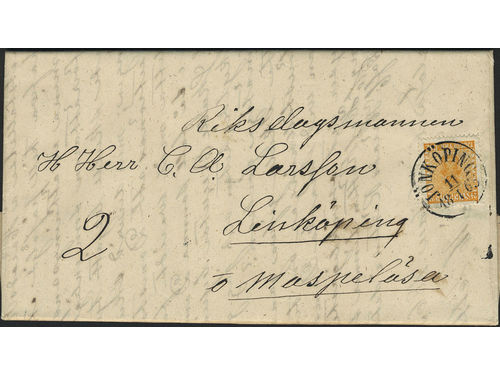 Riksdagsmannen
H Herr C. A. Larsson
Linköping
ō Maspelösa
2
JÖNKÖPING
11